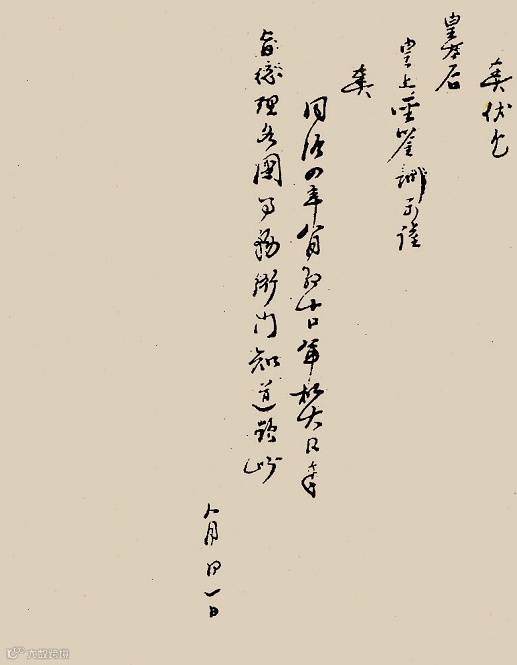 奏伏乞
皇太后
皇上聖鑒訓示謹
奏
同治四年八月初十日軍機大臣奉
旨總理各國事務衙門知道欽此
八月 一日
大数跨境